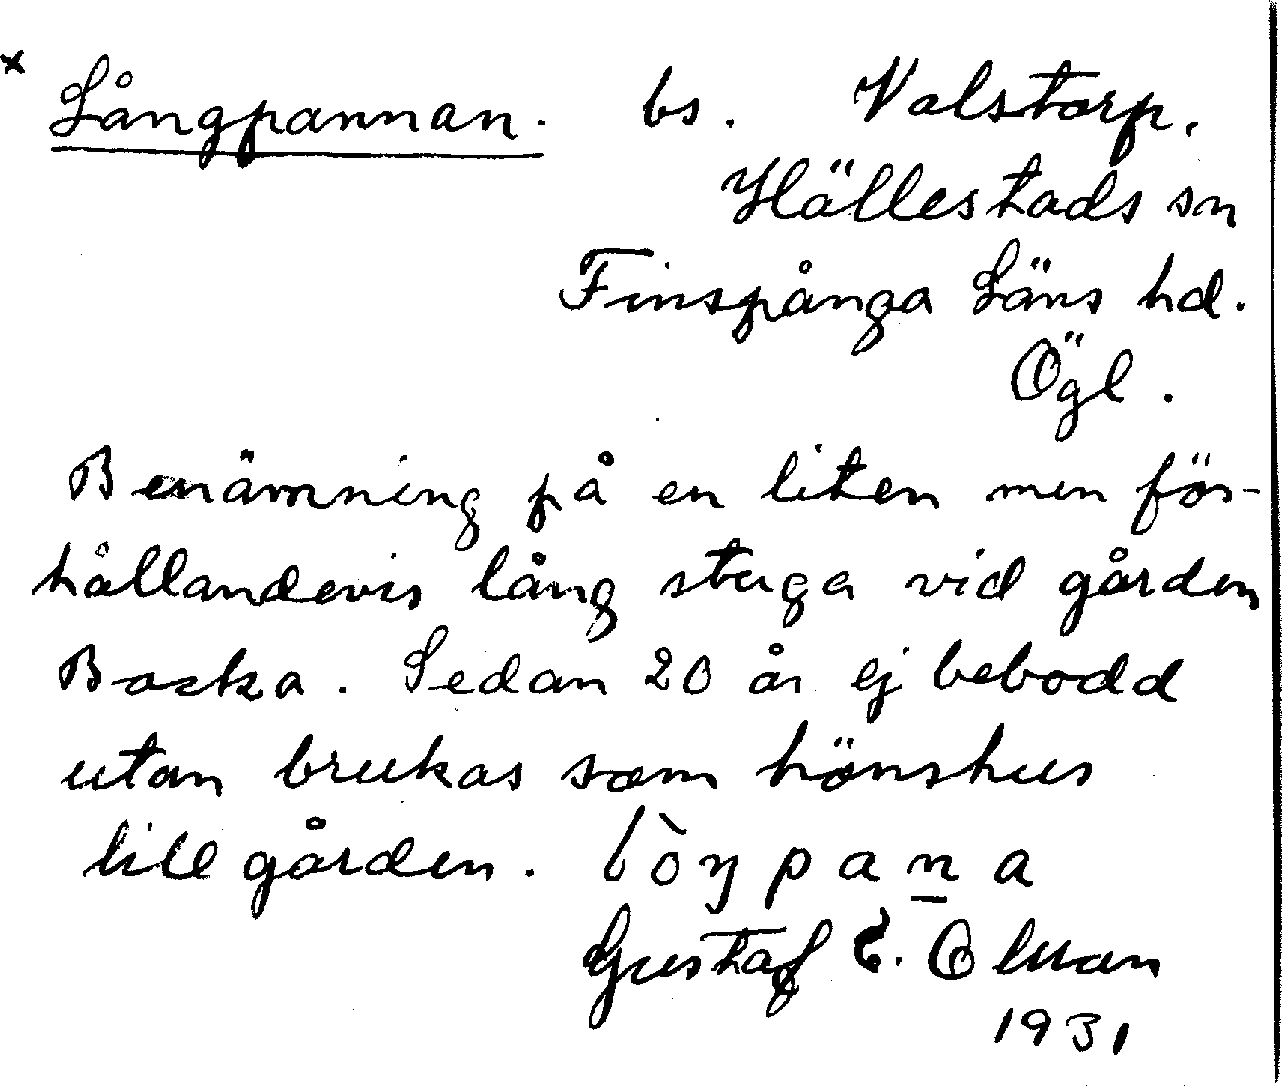 × Långpannan. bs. Valstorp.
Hällestads sn
Finspånga Läns hd.
Ögl.
Benämning på en liten men för-
hållandevis lång stuga vid gården
Backa. Sedan 20 år ej bebodd
utan brukas som hönshus
till gården. lòŋpana
Gustaf E.
1931